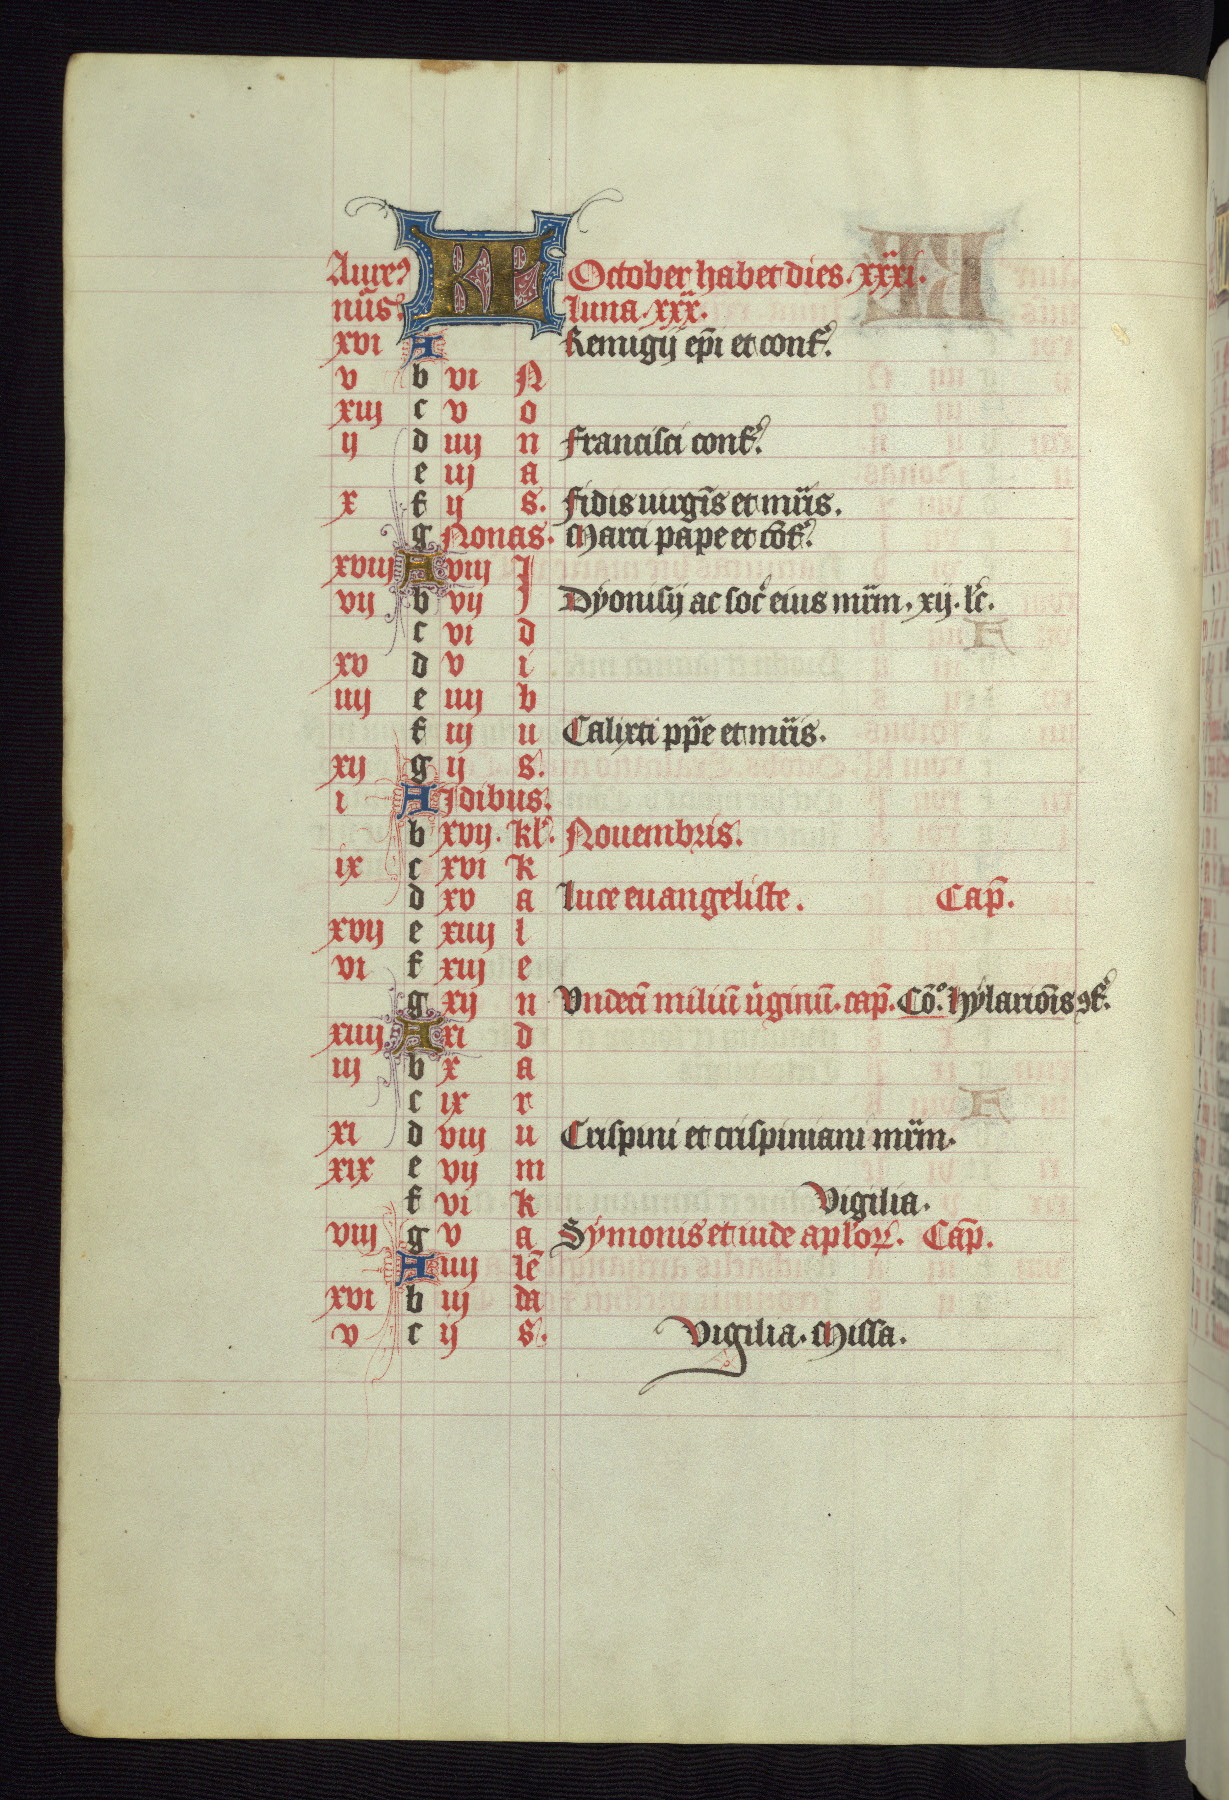 Aure᷒ KL October habet dies. xxxi.
nũs. luna. xxx.
xvi A Remigij ep̃i et conf᷒.
v b vi N
xiij c v o
ij d iiij n Francisci conf᷒.
e iij a
x f ij s. Fidis uirgĩs et mr̃is.
g Nonas. Marci pape et cõf᷒.
xviij A viij J
vij b vij J Dyonisij ac soc᷒ eius mr̃m. xij. lc̃.
c vi d
xv d v i
iiij e iiij b
f iij u Calixti pp̃e et mr̃is.
xij g ij s.
i A Jdibus.
b xvij. kl᷒. Nouembris.
ix c xvi k
d xv a luce euangeliste. Cap̃.
xvij e xiiij l
vi f xiij e
g xij n Vndeci᷒ miliũ ũginũ. cap̃. Cõ᷒. hylariõis ꝯf᷒.
xiiij A xi d
iij b x a
c ix r
xi d viij u Crispini et crispiniani mr̃m.
xix e vij m
f vi k Vigilia.
viij g v a Symonis et iude apl̃oꝝ. Cap̃.
A iiij lẽ
xvi b iij da
v c ij s. Vigilia. Missa.